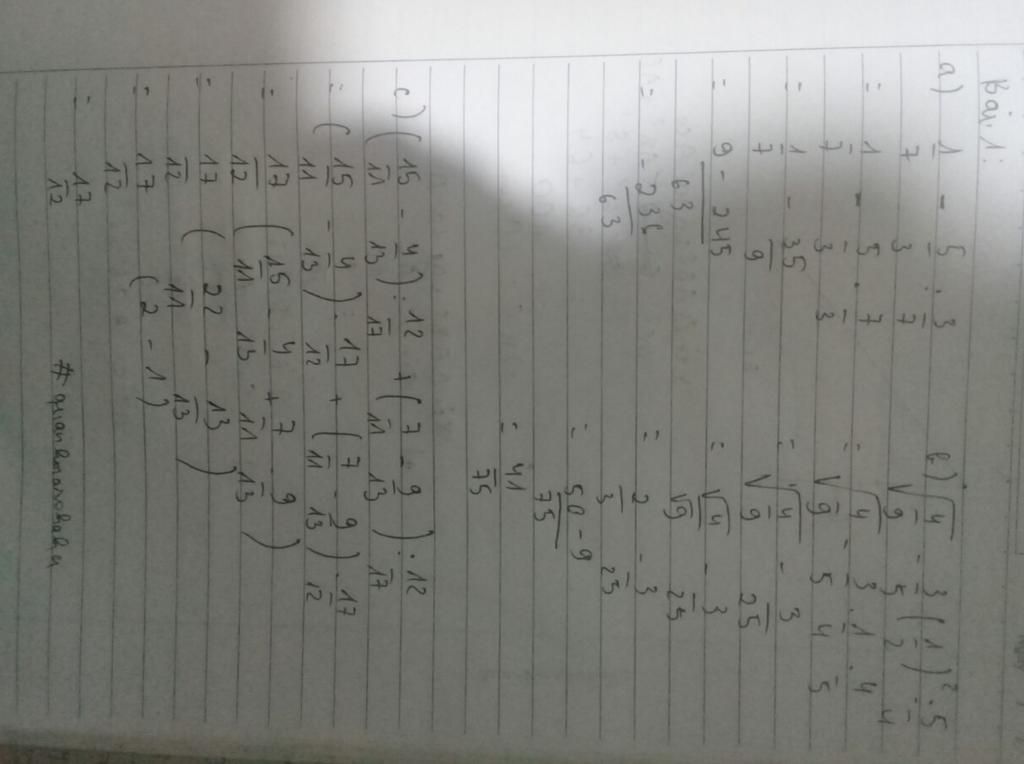 Bài 1:
a) 1/7 - 5/3 : 3/7
= 1/7 - 5/3 . 7/3
= 1/7 - 35/9
= (9 - 245)/63
= -236/63
b) √(4/9) - 3/5 (1/2)² : 5/4
= √(4/9) - 3/5 . 1/4 . 4/5
= √(4/9) - 3/25
= √4/√9 - 3/25
= 2/3 - 3/25
= (50 - 9)/75
= 41/75
c) (15/11 - 4/13) : 12/17 + (7/11 - 9/13) : 12/17
= (15/11 - 4/13) . 17/12 + (7/11 - 9/13) . 17/12
= 17/12 (15/11 - 4/13 + 7/11 - 9/13)
= 17/12 (22/11 - 13/13)
= 17/12 (2 - 1)
= 17/12